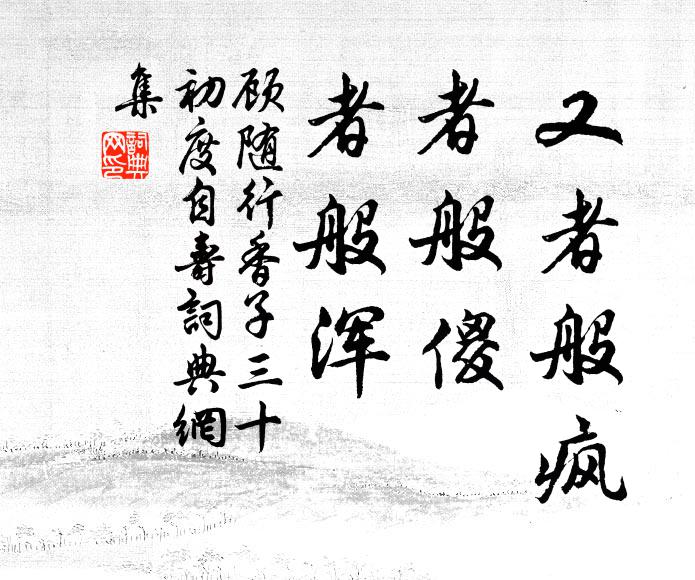 又者般疯
者般傻
者般浑
顾随行香子三十
初度自壽詞典網
集
詞典
网印